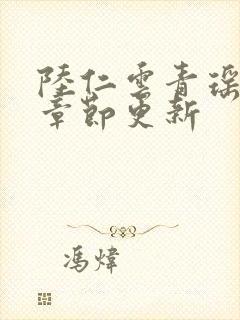 陸仁雲青瑤
章節更新
馮煒